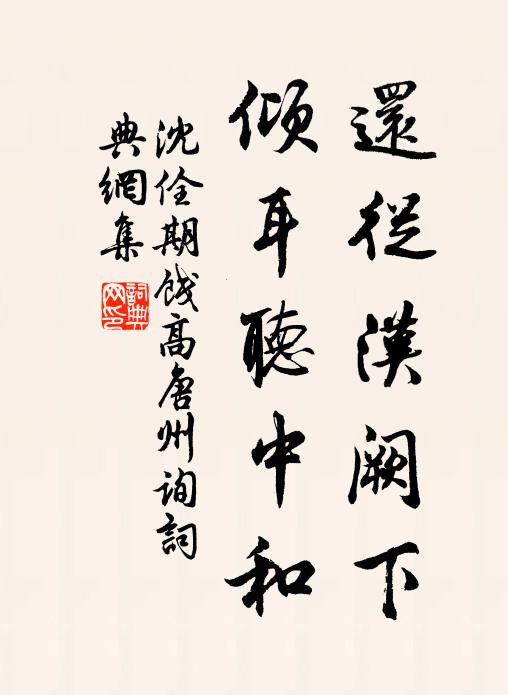 還從漢闕下
傾耳聽中和
沈佺期餞高唐州詢詞
典網集
詞典
网印